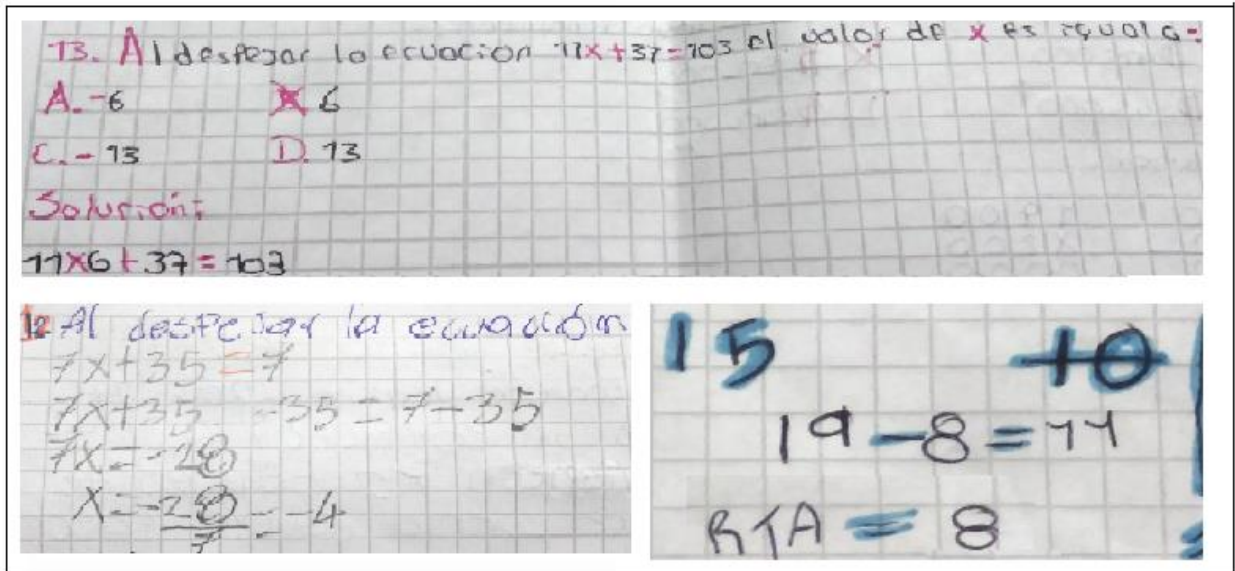 13. Al despejar la ecuacion 11x+37=103 el valor de x es igual a:
A. -6 6
C. - 13 D. 13
Solucion:
11x6+37=103
12 Al despejar la ecuación
7x+35=7
7x+35 -35=7-35
7x=-28
x=-28/7=-4
15 10
19-8=11
RTA=8